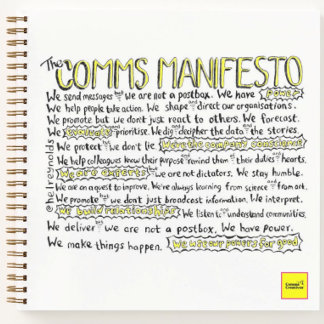 The COMMS MANIFESTO
We send messages but we are not a postbox. We have power
We help people take action. We shape and direct our organisations.
We promote but we don't just react to others. We forecast.
We evaluate and prioritise. We dig and decipher the data and the stories.
We protect but we don't lie. We're the company conscience
We help colleagues know their purpose and remind them of their duties and hearts.
We are experts but we are not dictators. We stay humble.
We are on a quest to improve. We're always learning from science and from art.
We promote but we don't just broadcast information. We interpret.
We build relationships. We listen to and understand communities.
We deliver but we are not a postbox. We have power.
We make things happen. We use our powers for good
@helreynolds
Comms Creatives